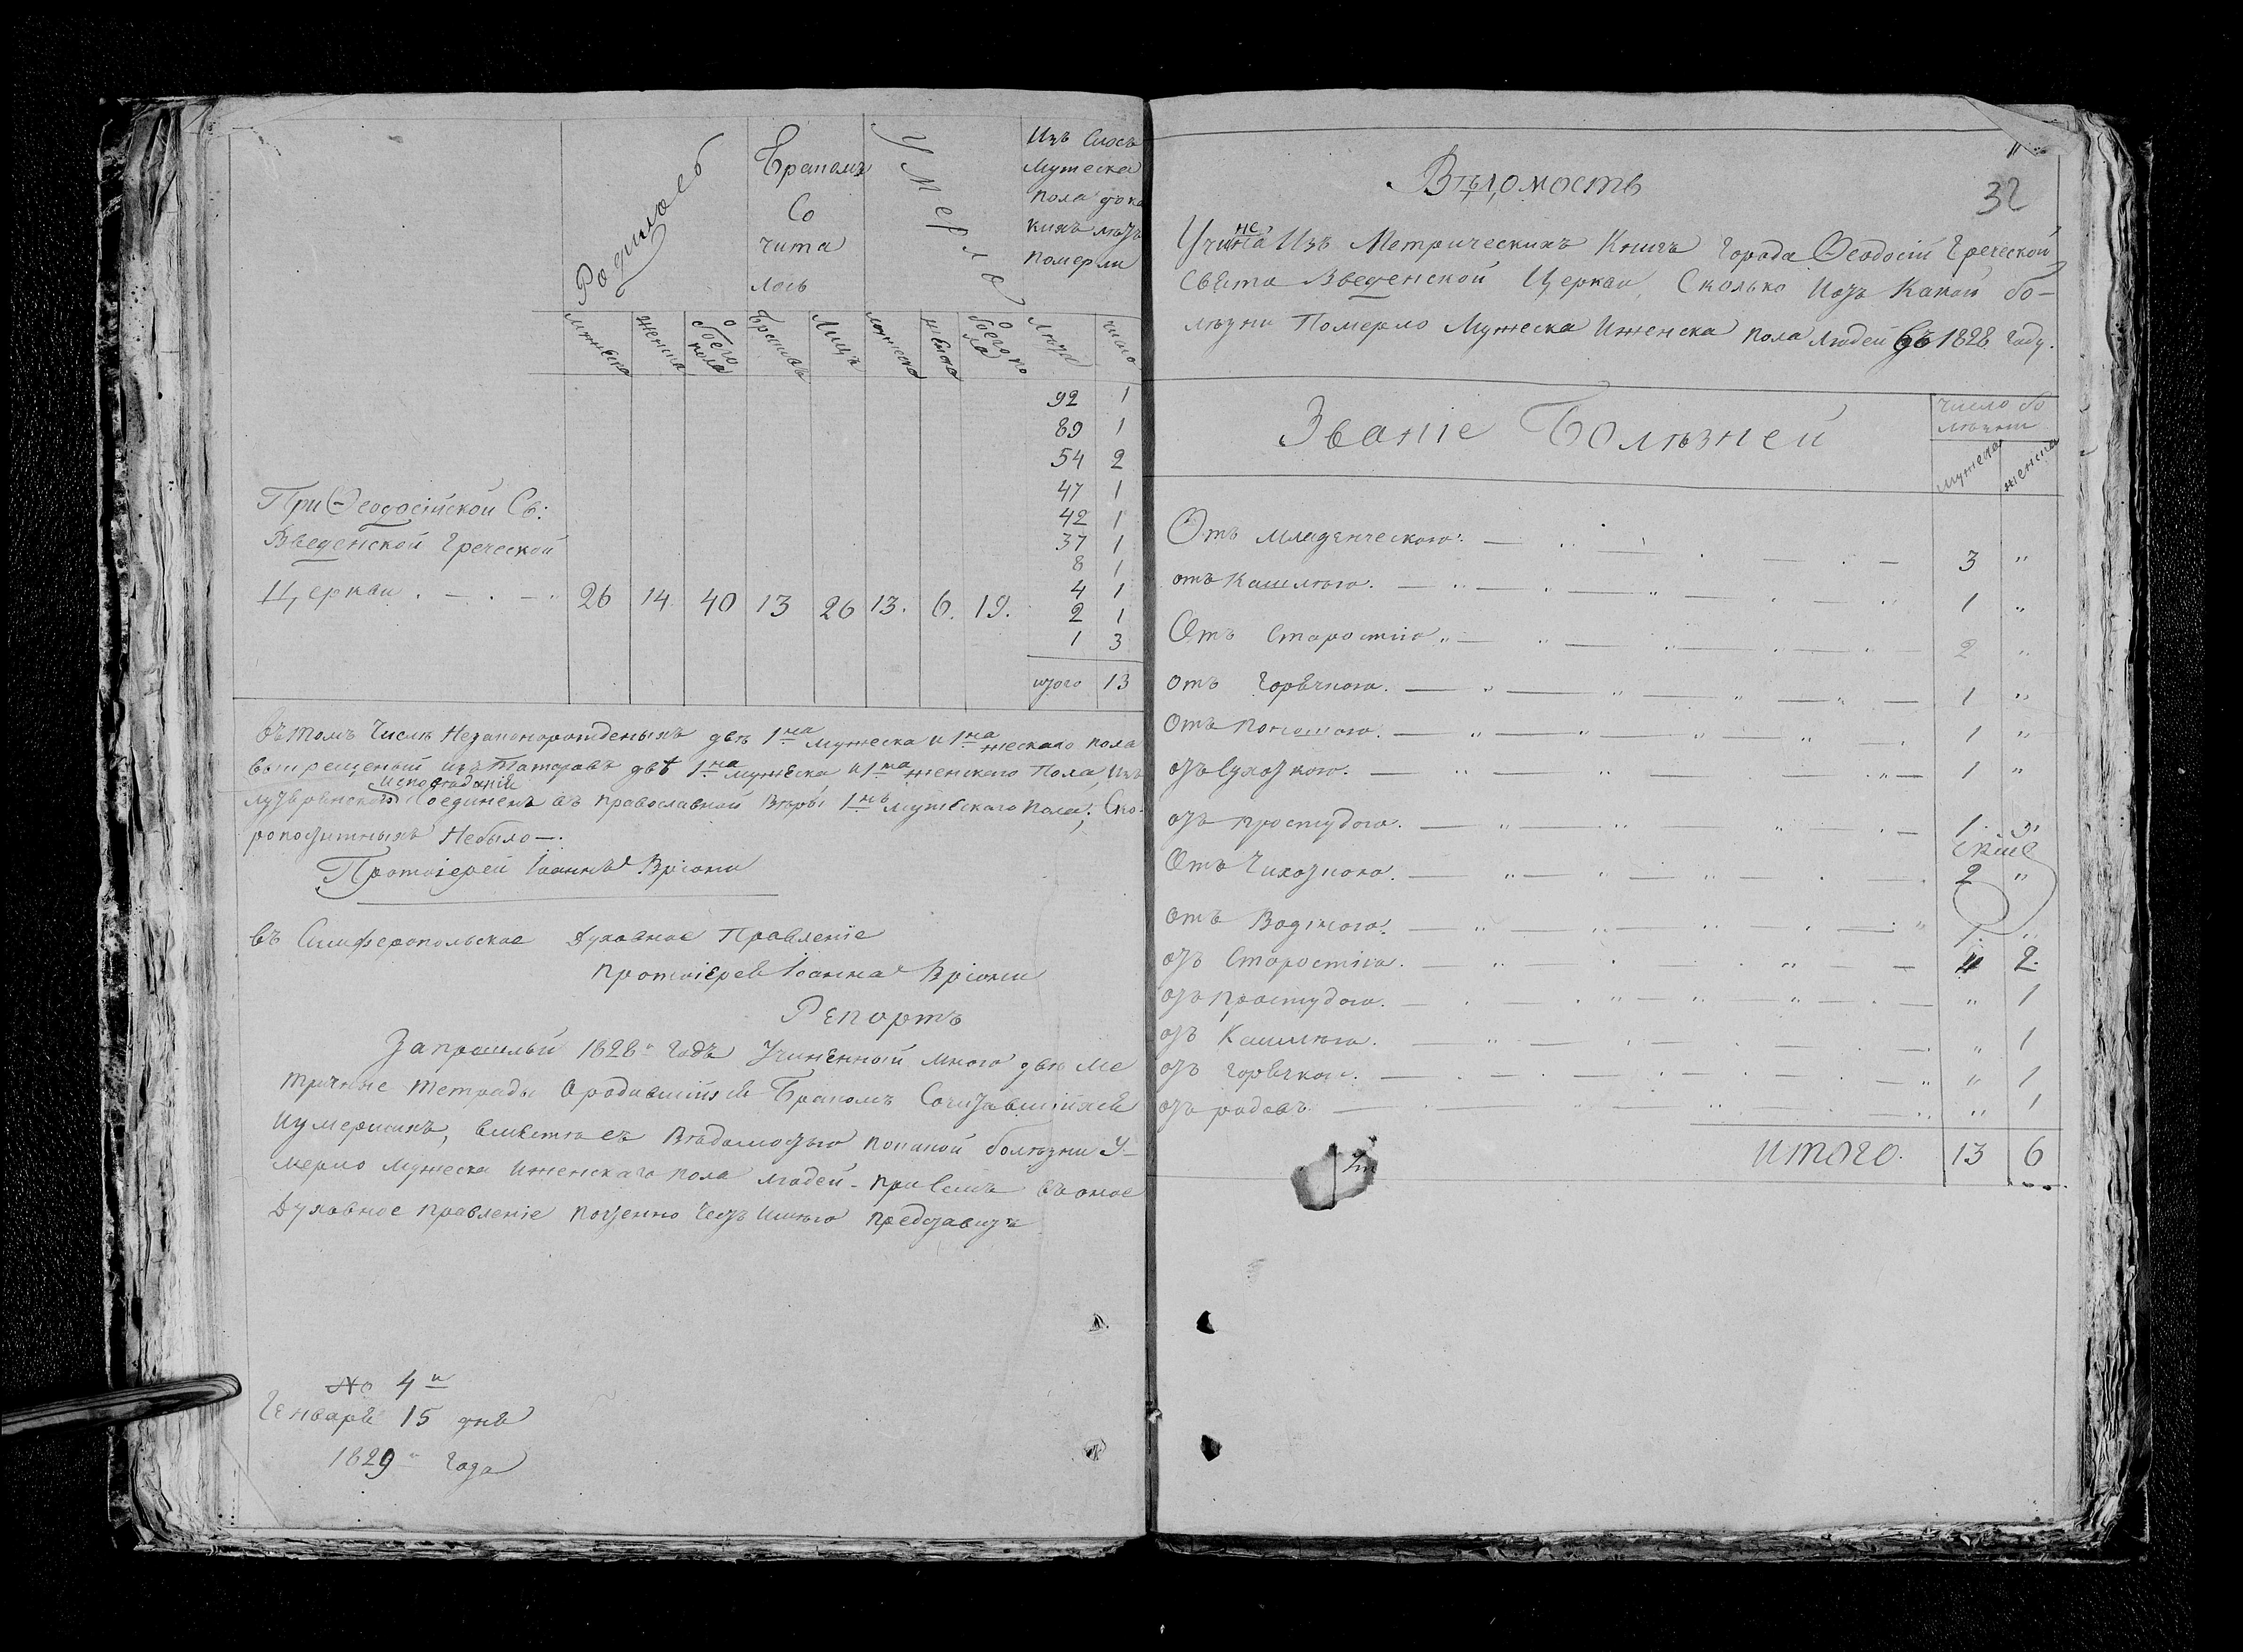 Родилось
Бракомъ
Со
чита
лось
Умерло
Изъ Сихъ
Мужеска
пола до ка
кихъ лѣтъ
померли
Мужеска
Женска
Обоего пола
Браковъ
Лицъ
Мужеска
Женска
Обоего пола
Лѣта
Число
92 1
89 1
54 2
47 1
42 1
37 1
8 1
4 1
2 1
1 3
итого 13
При Ѳеодосійской Св:
Введенской Греческой
Церкви 26 14 40 13 26 13. 6. 19.
вътомъ Числѣ Незаконорожденыхъ двѣ 1на мужеска и 1на женскаго пола
выкрещеный изъ Татаровъ двѣ 1на мужеска, и 1на женскаго Пола, Изъ
исповѣданій
соединенъ въ православной Вѣры 1нъ мужескаго пола; Ско-
ропостижныхъ Небыло —.
Протоіерей Іоаннъ Вріони
въ Симферопольское Духовное Правленіе
Протоіерея Іоанна Вріони
Репортъ
Запрошлый 1828й годъ Учиненный мною двѣ Ме
тричные тетрады ородившійся Бракомъ Сочетавшійся
иумершихъ, вмѣстѣ съ Вѣдомостью покакой болѣзни У-
мерло Мужеска Иженскаго пола людей - при Семъ въ оное
Духовное правленіе почтенно Честь имѣю представить
№ 4й
Генваря 15 дня
1829 года
32
Вѣдомость
Учинена Изъ Метрическихъ Книгъ Города Ѳеодосіи Греческой
Свято Введенской Церкви, Сколько Иотъ Какой бо-
лѣзни Померло Мужеска Иженска пола людей въ 1828 году.
Званіе Болѣзней
Число бо
лѣзней
мужеска
женска
Отъ младенческою. 3 "
отъ Кашлею. 1 "
Отъ Старостію 2 "
отъ горячкою. 1 "
отъ поносною. 1 "
отъ Сухоткою. 1 "
отъ простудою. 1 "
Отъ Чихоткою. 2 "
отъ Водяною. 1 "
отъ Старостію. " 2
отъ простудою. " 1
отъ Кашлею. " 1
отъ горячкою. " 1
отъ родовъ " 1
итого. 13 6